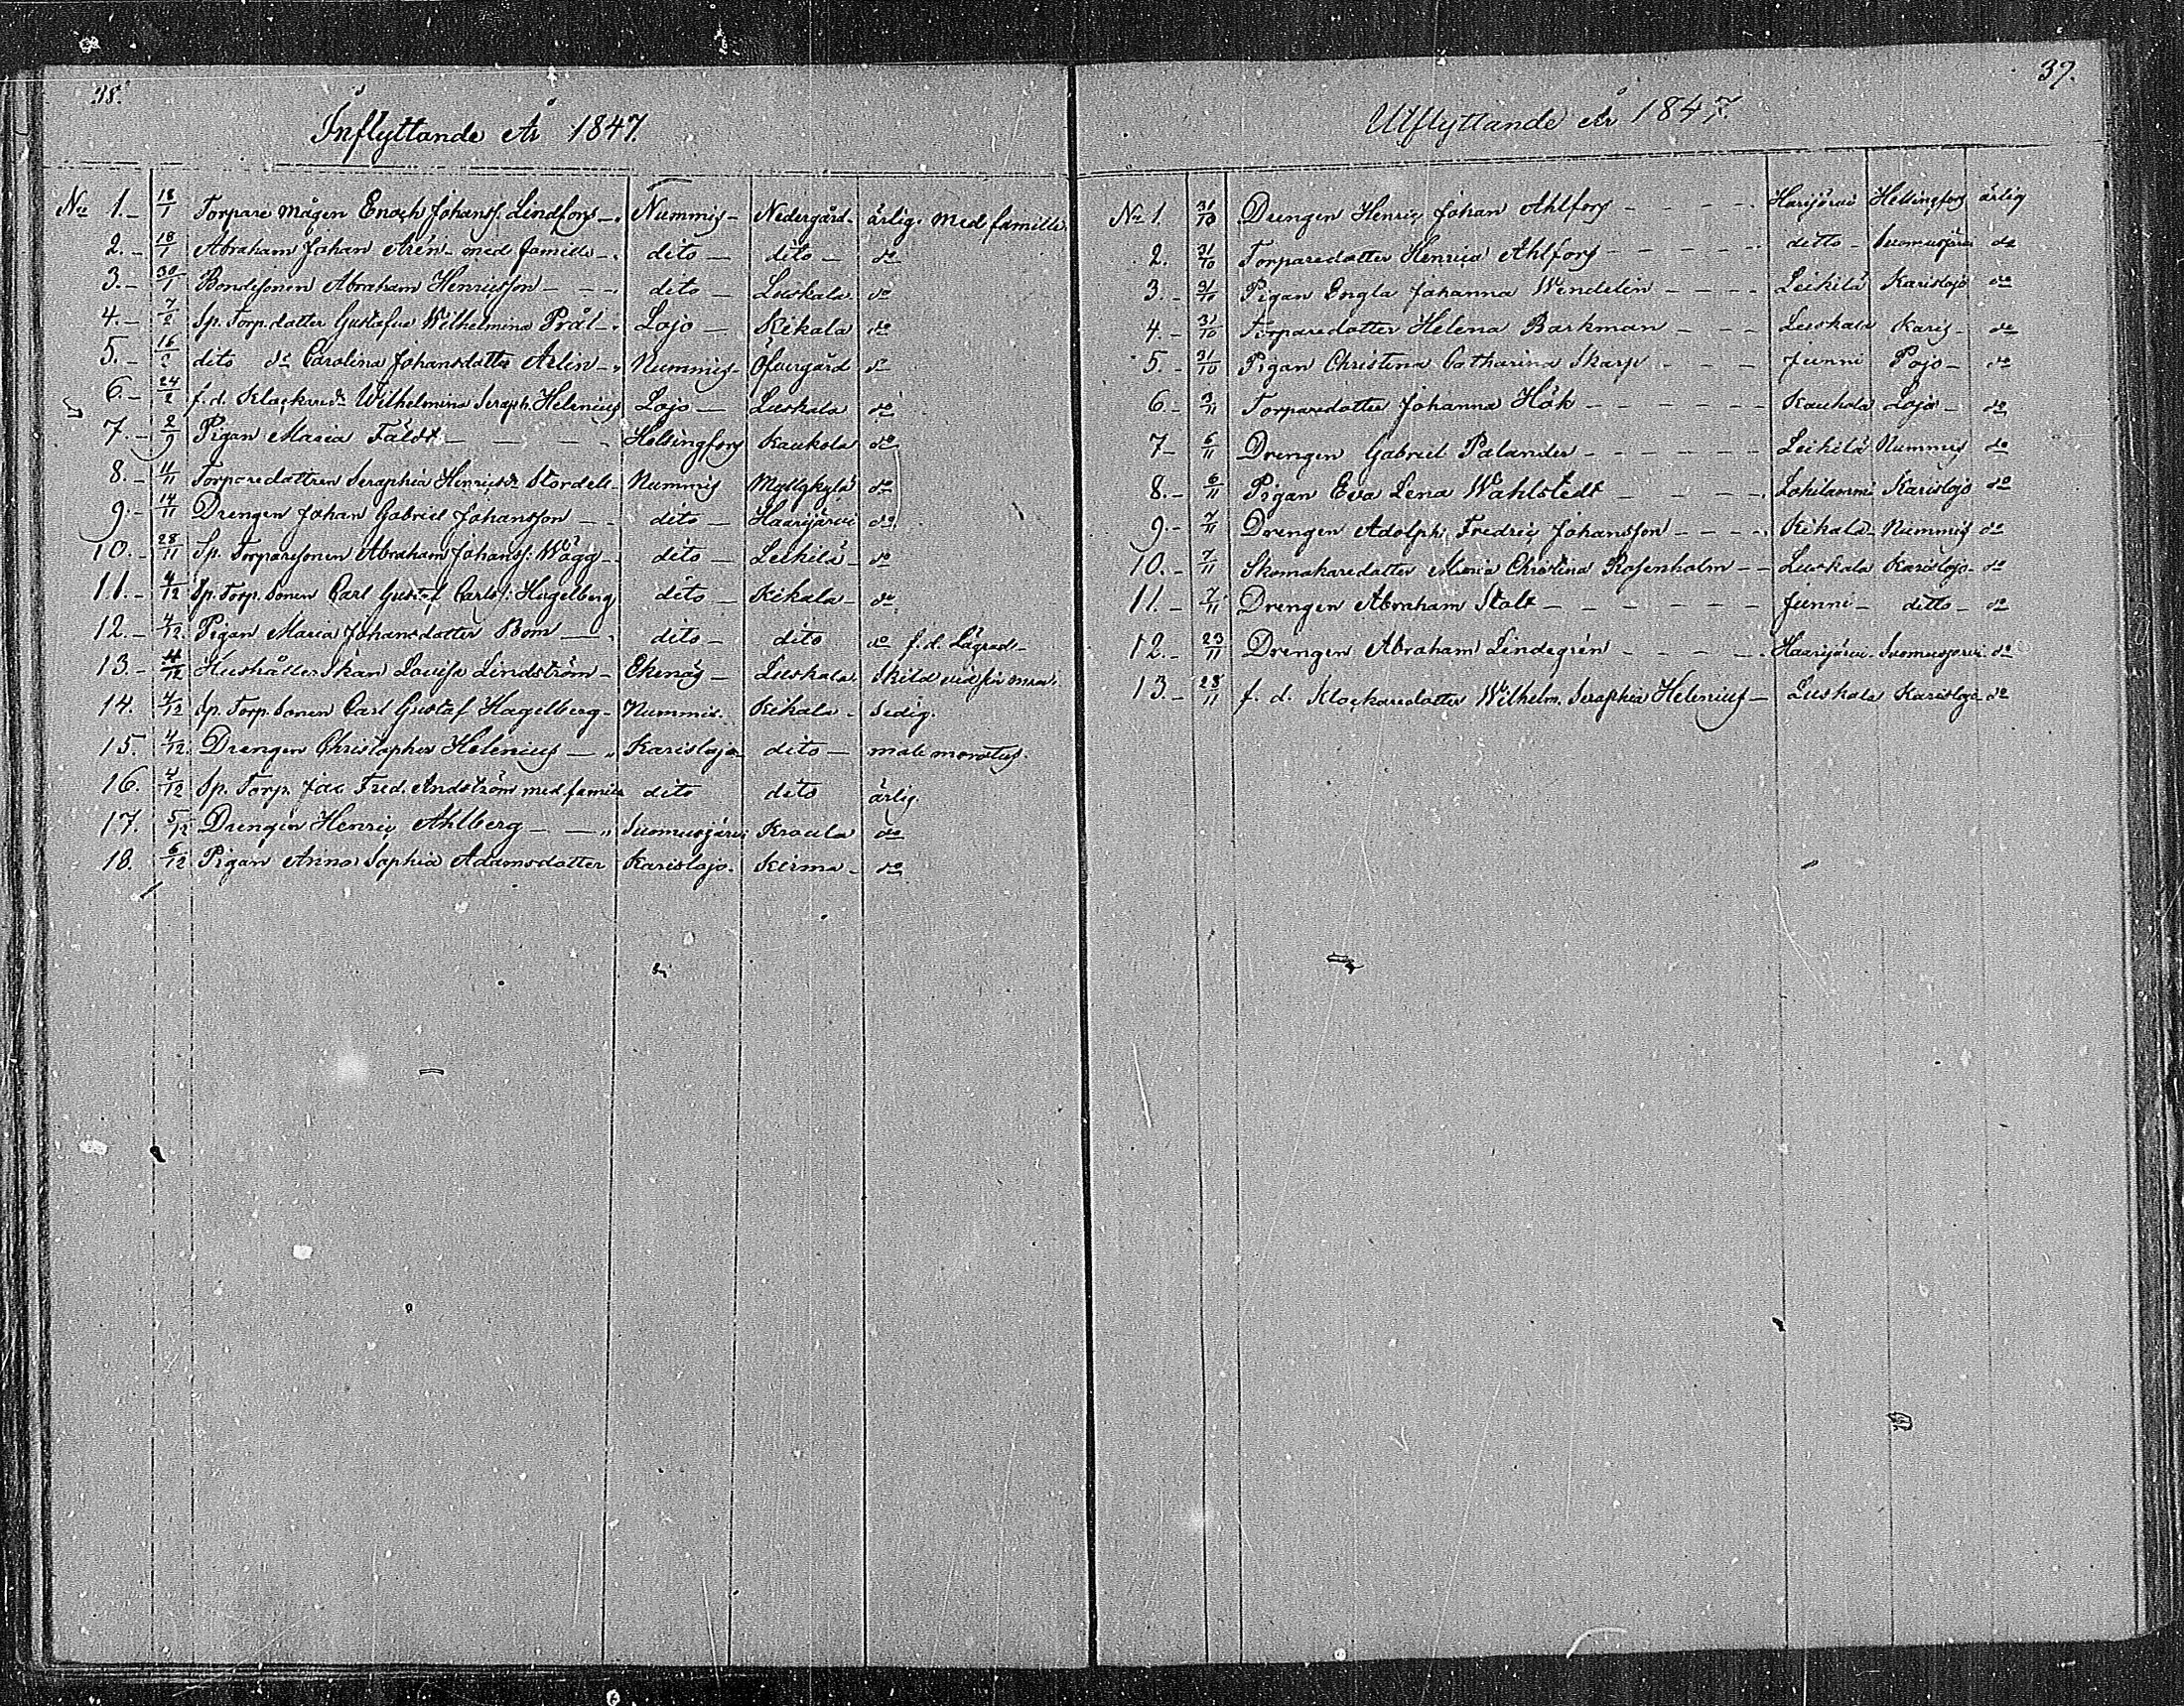 38.
Inflyttande År 1847.
No 1.- 18/1 Torpare mågen Enoch Johanss. Lindfors - Nummis - Nedergård - ärlig. med famille.
2.- 18/1 Abraham Johan Arén - med famille - dito - dito - do
3.- 30/1 Bondesonen Abraham Henricsson - dito - Luskala do
4.- 7/2 Sp. Torp. dotter Gustafva Wilhelmina Prål - Lojo - Kikala do
5.- 16/2 dito do Carolina Johansdotter Arlin - Nummis - Öfvergård do
6.- 24/2 f.d. Klockareds Wilhelmina Seraph. Helenius Lojo - Luskala do
7.- 2/9 Pigan Maria Fäldt - Helsingfors Kaukola do
8.- 4/11 Torparedottren Seraphia Henricsdr Stordell - Nummis Myllykylä do
9.- 14/11 Drengen Johan Gabriel Johansson - dito - Haarijärvi do
10.- 28/11 Sp. Torparesonen Abraham Johanss. Wägg - dito - Leikilä - do
11.- 4/12 Sp. Torp. Sonen Carl Gustaf Carlss. Hagelberg dito - Kikala - do
12.- 4/12 Pigan Maria Johansdotter Bom - dito - dito do f.d. Lägrad -
13.- 4/12 Hushållerskan Lovisa Lindström - Ekenäs - Luskala Skild vid sin man.
14. 4/12 Sp. Torp. Sonen Carl Gustaf Hagelberg - Nummis. Kikala - Sedig.
15. 4/12 Drengen Christopher Helenius - Karislojo dito - male moratus.
16. 4/12 Sp. Torp. Jac. Fred. Andström med famille dito dito ärlig.
17. 5/12 Drengen Henric Ahlberg - Suomusjärvi Kraula do
18. 6/12 Pigan Anna Sophia Adamsdotter Karislojo. Kirma - do
39.
Utflyttande År 1847.
No 1. 31/10 Drengen Henric Johan Ahlfors - Harijärvi Helsingfors ärlig
2. 31/10 Torparedotter Henrica Ahlfors - ditto - Suomusjärvi do
3.- 31/10 Pigan Engla Johanna Wendelin - Leikilä Karislojo do
4.- 31/10 Torparedotter Helena Barkman - Luskala Karis - do
5.- 31/10 Pigan Christina Catharina Skarp - Junni Pojo - do
6.- 3/11 Torparedotter Johanna Hök - Kaukola Lojo - do
7.- 6/11 Drengen Gabriel Palander - Leikilä Nummis do
8.- 6/11 Pigan Eva Lena Wahlstedt - Lohilammi Karislojo do
9.- 7/11 Drengen Adolph Fredric Johansson - Kikala - Nummis do
10.- 7/11 Skomakaredotter Maria Christina Rosenholm - Luskala Karislojo do
11.- 7/11 Drengen Abraham Stolt - Junni - ditto - do
12.- 23/11 Drengen Abraham Lindegrén - Haarijärvi. Suomusjärvi do
13.- 28/11 f. d. Klockaredotter Wilhelm. Seraphia Helenius - Luskala Karislojo do